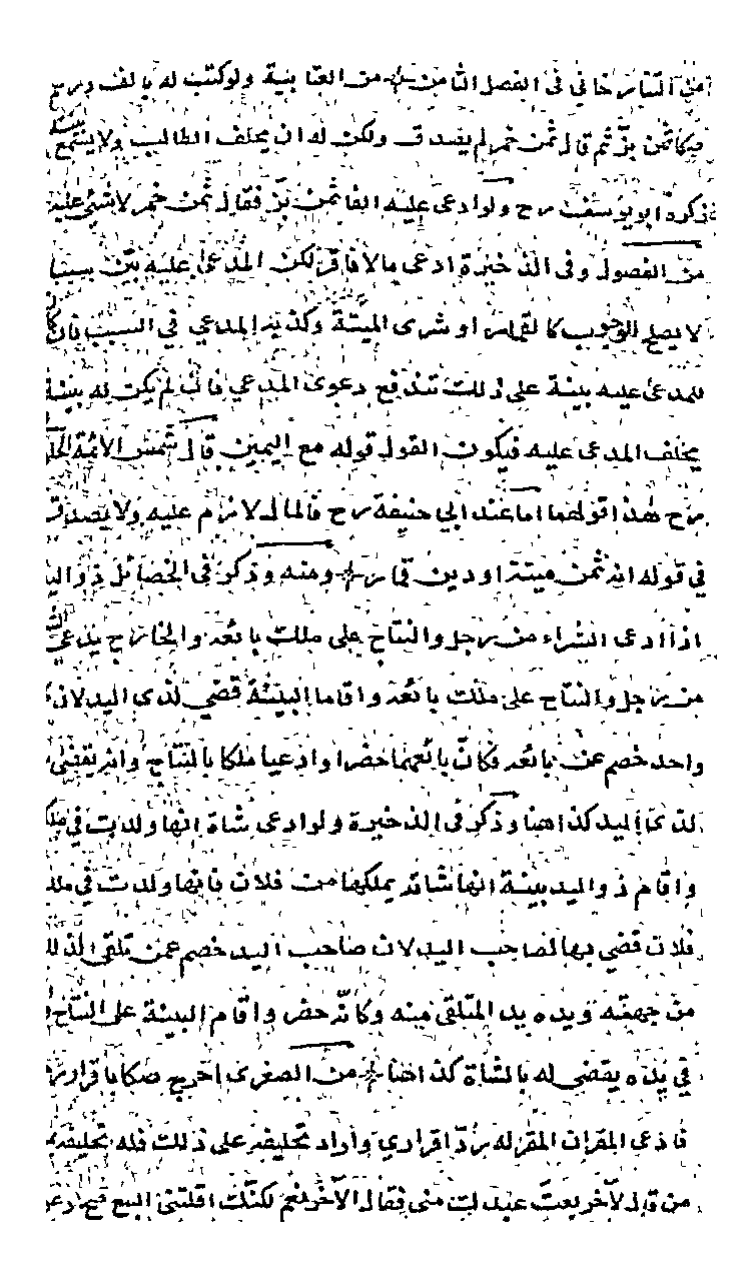 من التتارخاني في الفصل الثامن من العتابية ولو كتب له بالف درهم
صكا ثمن بز ثم قال ثمن خمر لم يصدق ولكن له ان يحلف الطالب ولا يسمع
ذكره ابو يوسف رح ولو ادعى عليه الفا ثمن بز فقال ثمن خمر لا شئ عليه
من الفصول وفي الذخيرة ادعى مالا فاقر لكن المدعى عليه بين بسببا
لا يصلح الوجوب كالقمار او شرى الميتة وكذبه المدعي في السبب فان كان
للمدعى عليه بينة على ذلك تندفع دعوى المدعي فان لم يكن له بينة
يحلف المدعى عليه فيكون القول قوله مع اليمين قال شمس الائمة
رح هذا قولهما اما عند ابي حنيفة رح فالمال لازم عليه ولا يصدق
في قوله انه ثمن ميتة او دين قمار ومنه وذكر في الخصائل ذو اليد
اذا ادعى الشراء من رجل والنتاج على ملك بائعه والخارج يدعي
من رجل والنتاج على ملك بائعه واقاما البينة قضي لذى اليد لان
واحد خصم عن بائعه فكان بائعهما حضرا وادعيا ملكا بالنتاج وانه يقضى
لذى اليد كذا هنا وذكر في الذخيرة ولو ادعى شاة انها ولدت في ملكه
واقام ذو اليد بينة انها شاته يملكها من فلان فانها ولدت في ملك
فلان قضي بها لصاحب اليد لان صاحب اليد خصم عمن تلقى
من جهته ويده يد المتلقى منه وكانه حضر واقام البينة على النتاج
في يده يقضى له بالشاة كذا هنا من الصغرى اخرج صكا باقرار
فادعى المقر ان المقر له رد اقراري واراد تحليفه على ذلك فله تحليفه
من قال لآخر بعت عبدك مني فقال الآخر نعم لكنك اقلتني البيع